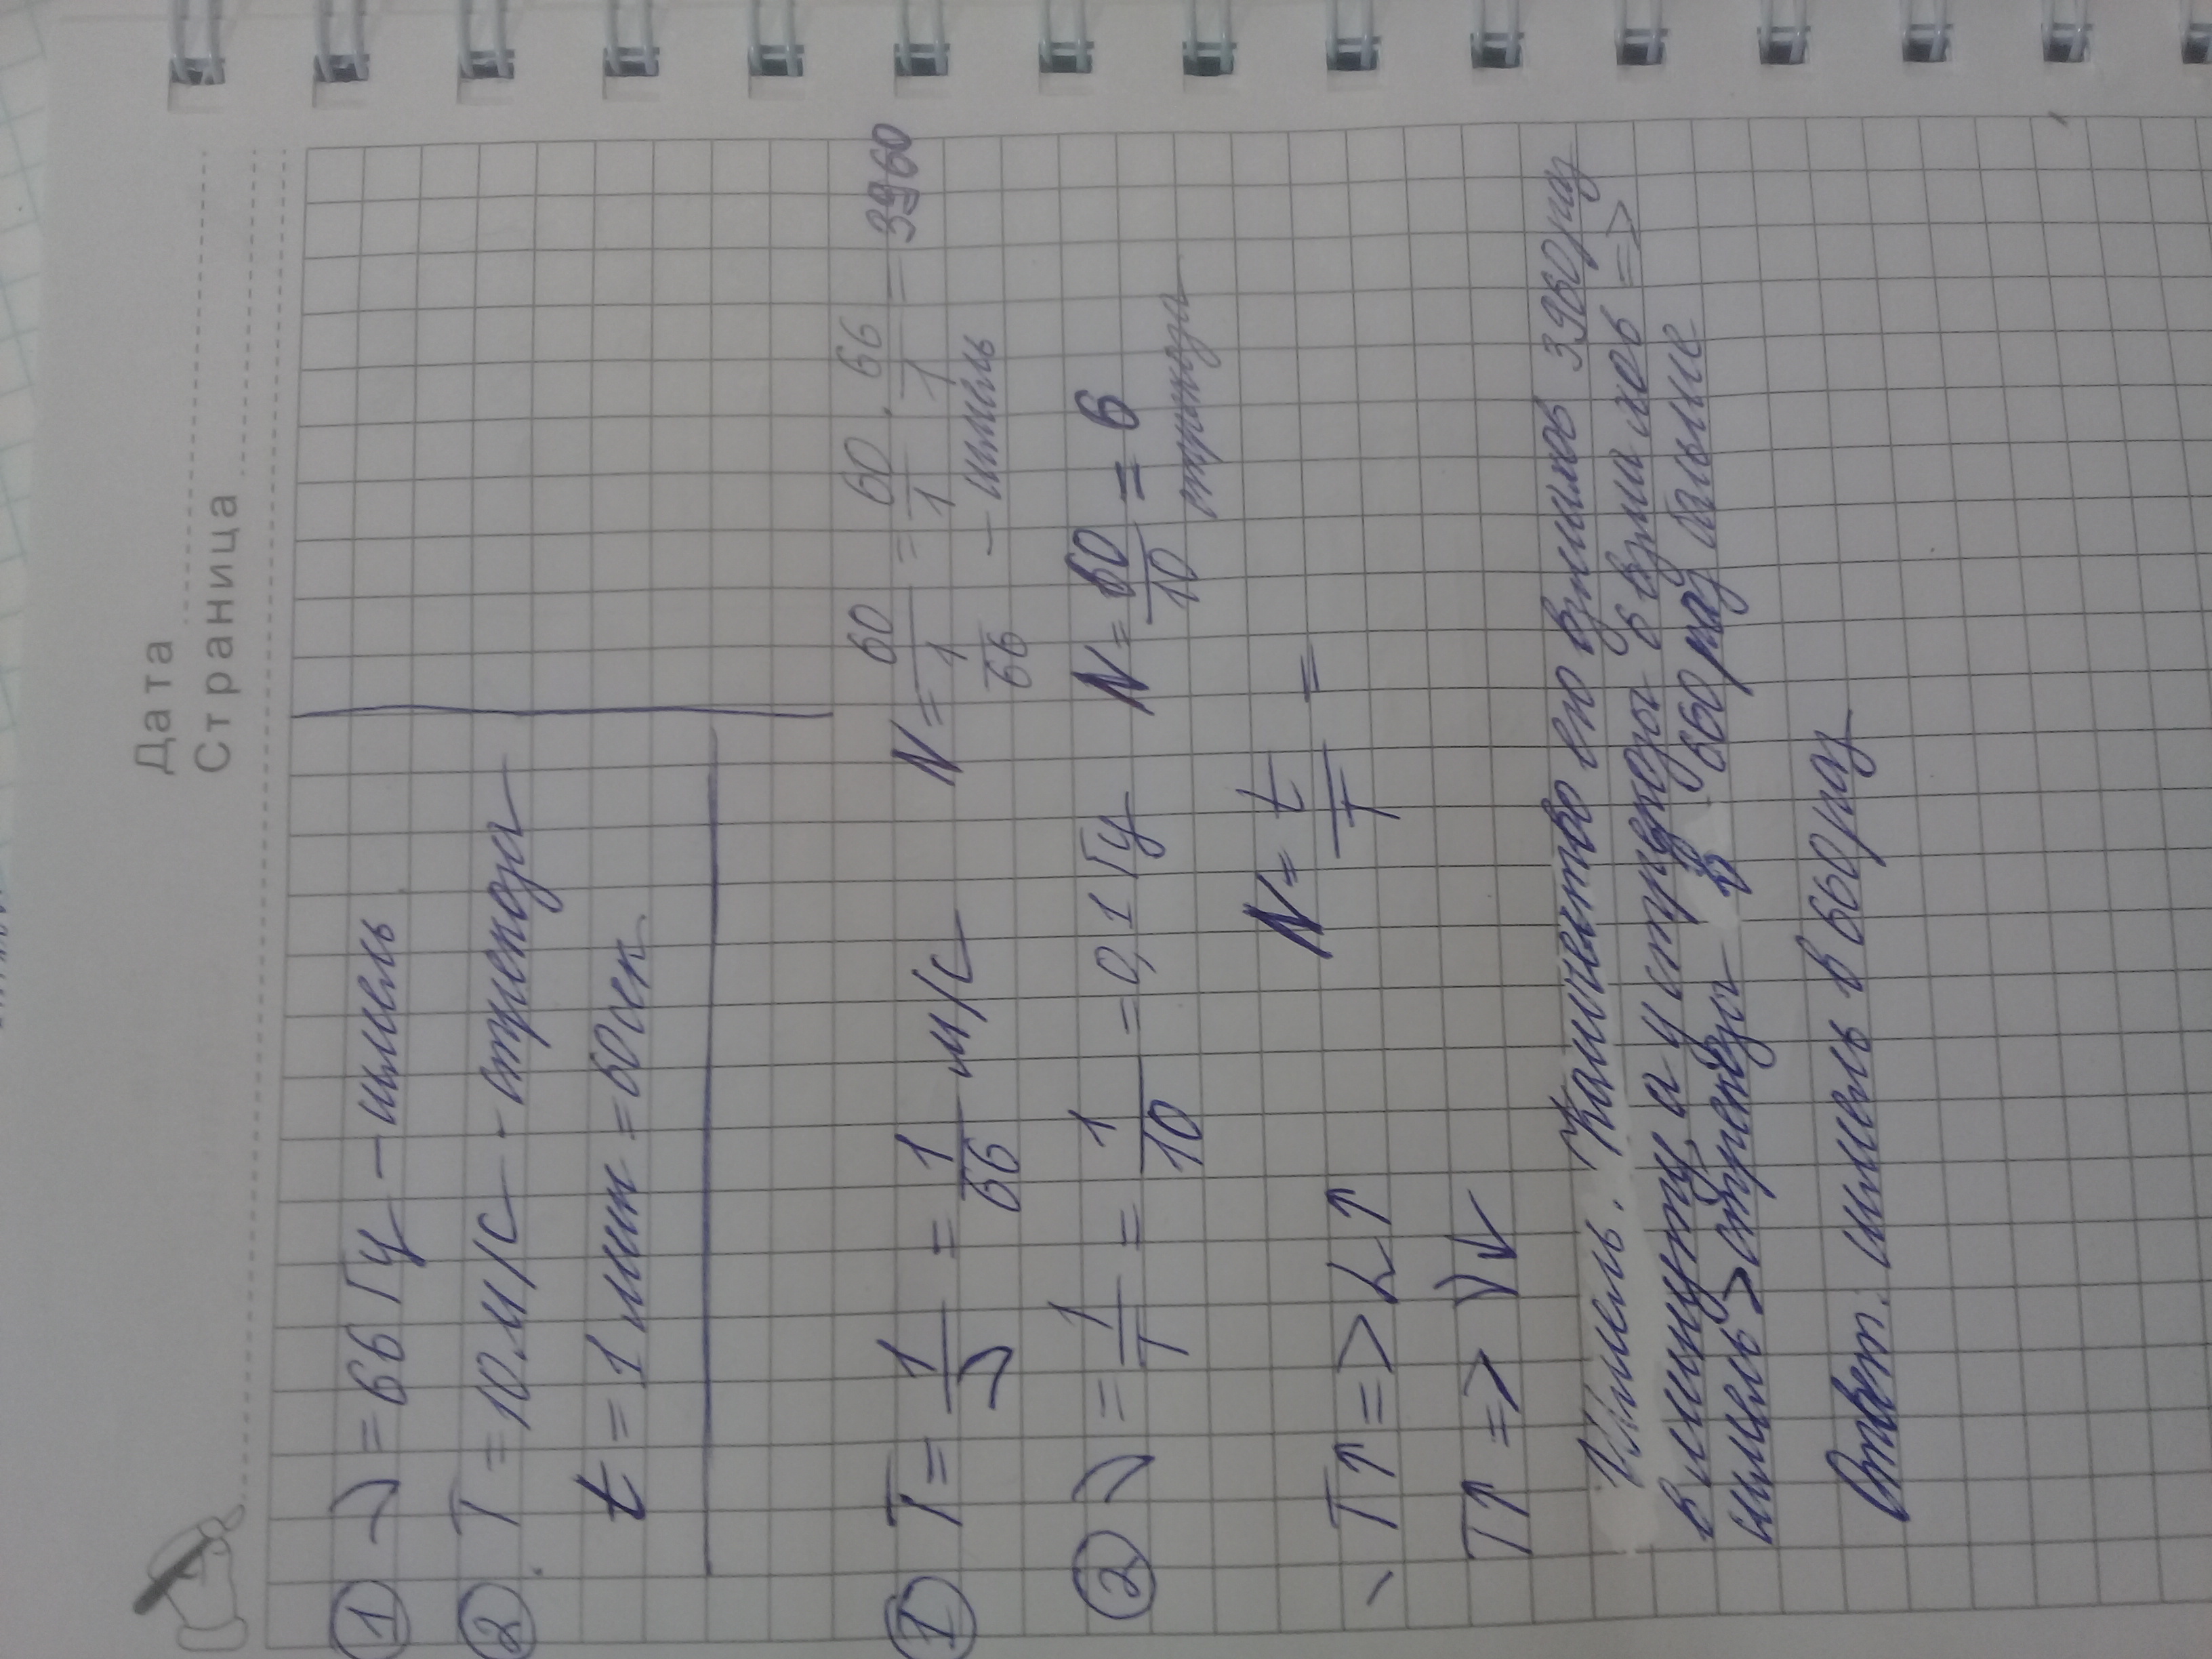 Дата
Страница
① ν = 66 Гц – шмель
② T = 10 м/с - стрекоза
t = 1 мин = 60 сек
① T = 1/ν = 1/66 м/с N = 60/(1/66) = 60/1 · 66/1 = 3960
– шмель
② ν = 1/T = 1/10 = 0,1 Гц N = 60/10 = 6
стрекоза
N = t/T =
T↑ => L↑
T↑ => ν↓
Шмель. Количество его взмахов 3960 раз
в минуту, а у стрекозы 6 взмахов =>
шмель > стрекозы в 660 раз больше
Ответ: шмель в 660 раз